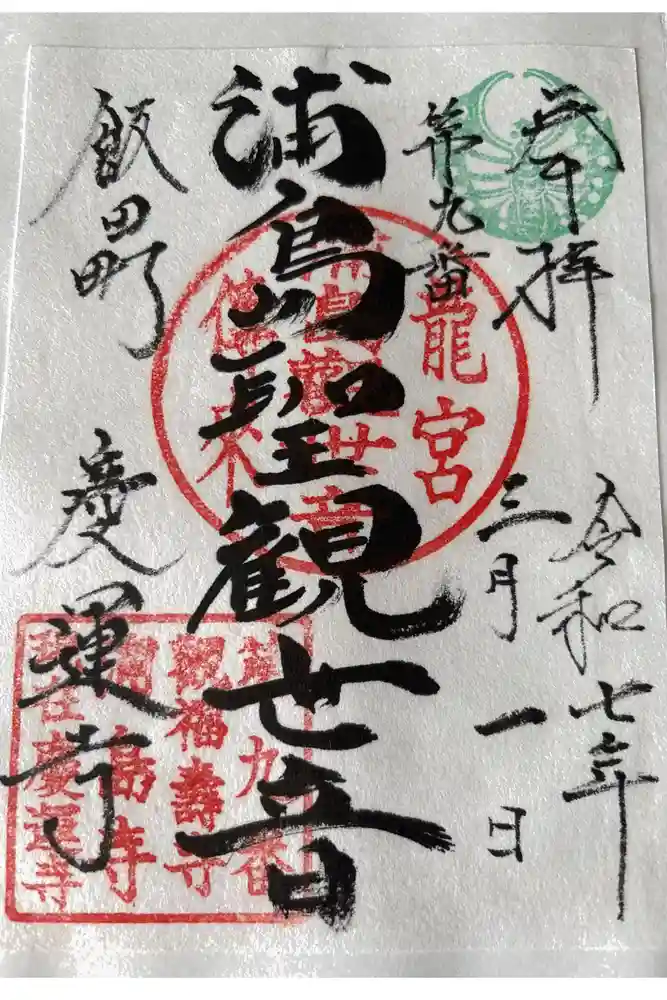 奉拝
令和七年
三月一日
第九番
浦島聖観世音
飯田町
慶運寺
龍宮
浦島観世音
第九番
観福壽寺
浦島寺
慶運寺